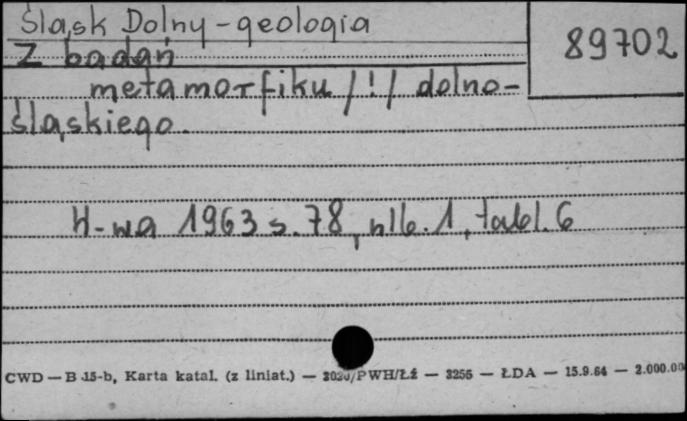 Śląsk Dolny - geologia
89702
Z badań
metamorfiku /!/ dolno-
śląskiego.
W-wa 1963 s. 78, nlb. 1, tabl. 6
CWD — B 15-b, Karta katal. (z liniat.) — /PWH/Łź — 3256 — ŁDA — 15.9.64 — 2.000.00